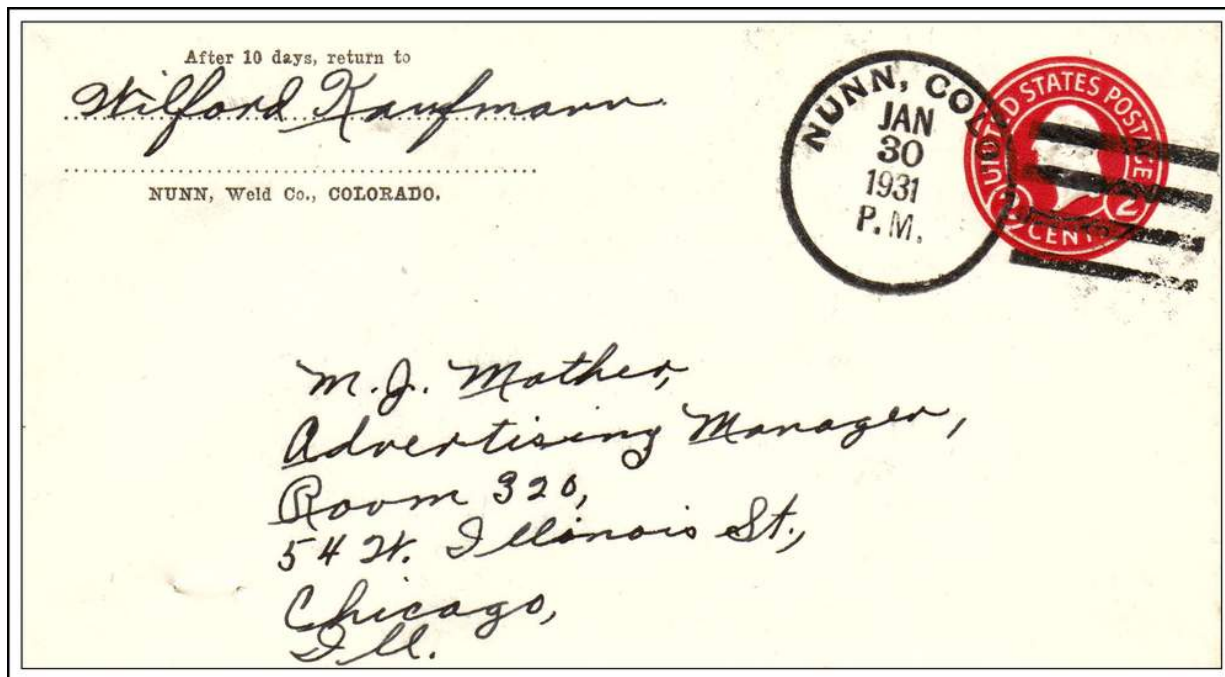 After 10 days, return to
Wilford Kaufmann
NUNN, Weld Co., COLORADO.
NUNN, COLO.
JAN
30
1931
P.M.
UNITED STATES POSTAGE
2 CENTS 2
M. J. Mather,
Advertising Manager,
Room 320,
54 W. Illinois St.,
Chicago,
Ill.